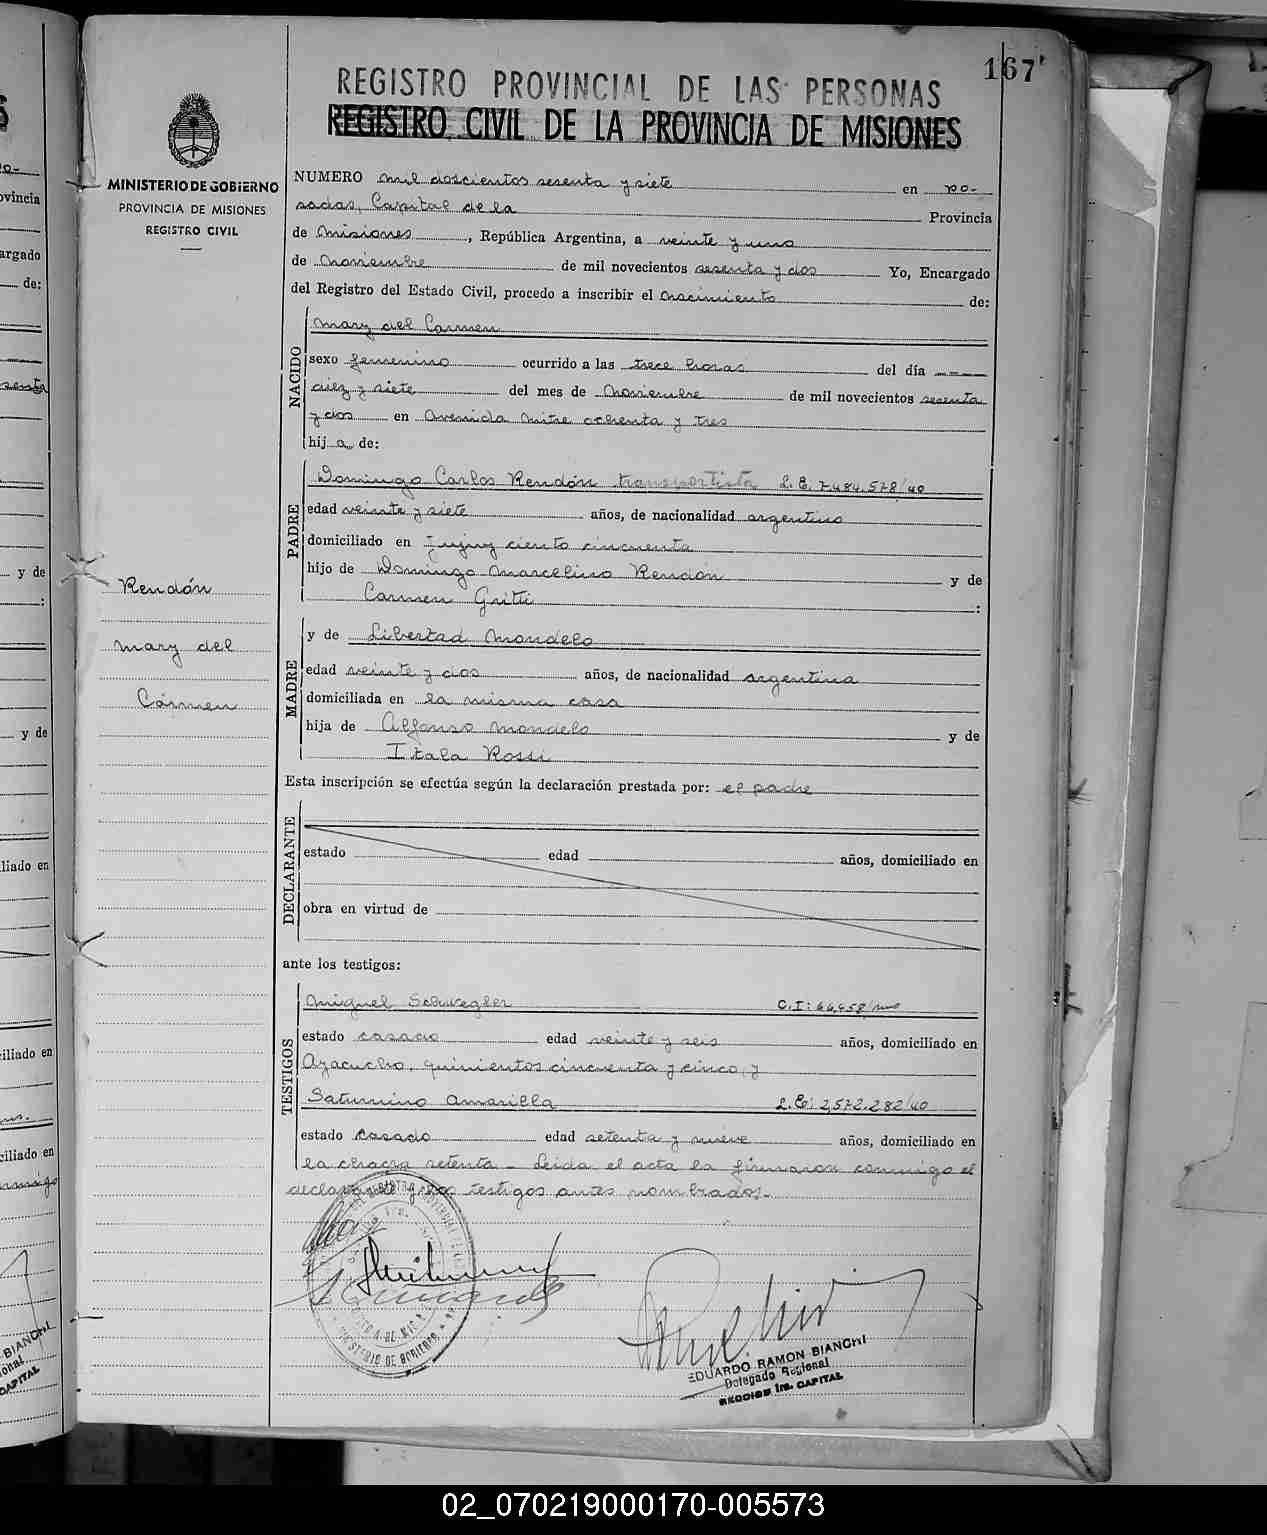 167
REGISTRO PROVINCIAL DE LAS PERSONAS
REGISTRO CIVIL DE LA PROVINCIA DE MISIONES
MINISTERIO DE GOBIERNO
PROVINCIA DE MISIONES
REGISTRO CIVIL
NUMERO mil doscientos sesenta y siete en Po-
sadas, Capital de la Provincia
de Misiones, República Argentina, a veinte y uno
de Noviembre de mil novecientos sesenta y dos Yo, Encargado
del Registro del Estado Civil, procedo a inscribir el Nacimiento de:
NACIDO
Mary del Carmen
sexo femenino ocurrido a las trece horas del día ----
diez y siete del mes de Noviembre de mil novecientos sesenta
y dos en Avenida Mitre ochenta y tres
hij a de:
PADRE
Domingo Carlos Rendón transportista L.E. 7.484.578/40
edad veinte y siete años, de nacionalidad argentino
domiciliado en Jujuy ciento cincuenta
hijo de Domingo Marcelino Rendón y de
Carmen Gritti :
Rendón
Mary del
Carmen
MADRE
y de Libertad Mondelo
edad veinte y dos años, de nacionalidad argentina
domiciliada en la misma casa
hija de Alfonso Mondelo y de
Itala Rossi
Esta inscripción se efectúa según la declaración prestada por: el padre
DECLARANTE
estado edad años, domiciliado en
obra en virtud de
ante los testigos:
TESTIGOS
Miguel Schwegler C.I: 66,958/mns
estado casado edad veinte y seis años, domiciliado en
Ayacucho, quinientos cincuenta y cinco, y
Saturnino Amarilla L.E: 2,572.282/40
estado casado edad setenta y nueve años, domiciliado en
la chacra setenta - Leida el acta la firmaron conmigo el
declarante y los testigos antes nombrados.-
MINISTERIO DE GOBIERNO
EDUARDO RAMON BIANCHI
Delegado Regional
SECCION 1ra. CAPITAL
02_070219000170-005573